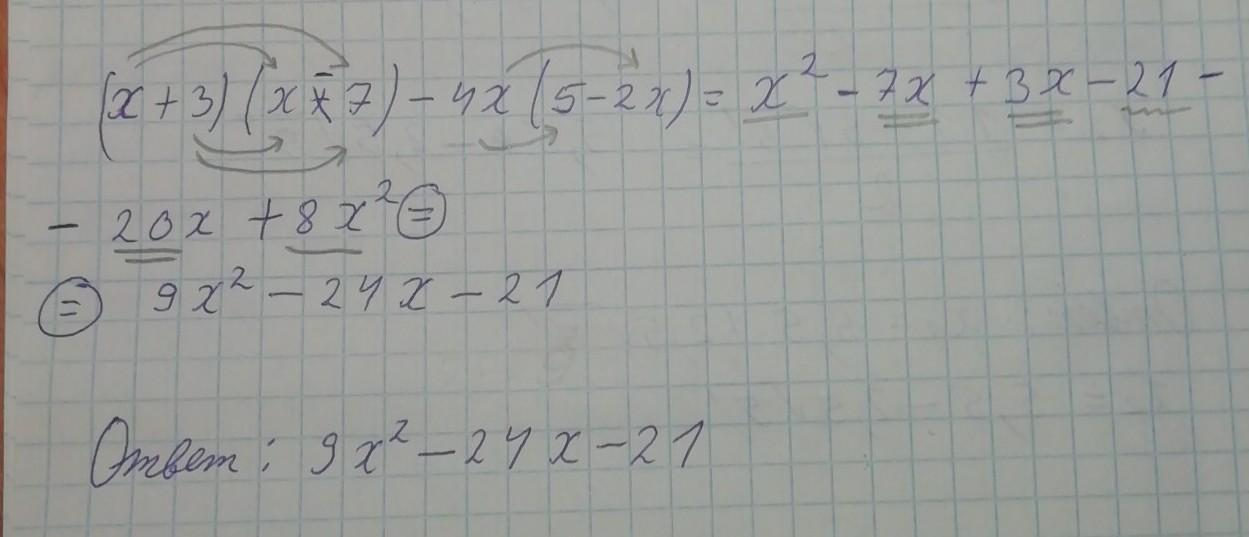 (x + 3) (x - 7) - 4x (5 - 2x) = x² - 7x + 3x - 21 -
- 20x + 8x² =
= 9x² - 24x - 21
Ответ: 9x² - 24x - 21